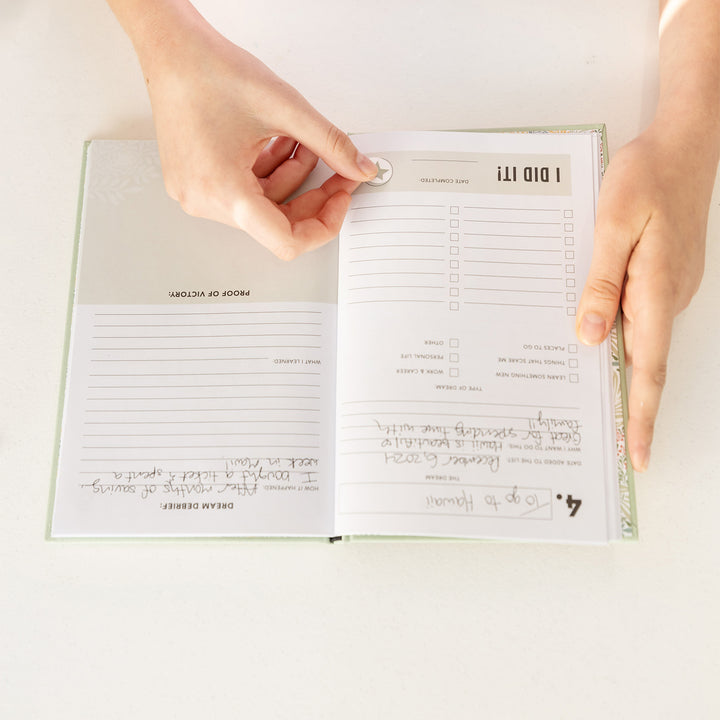 4. To go to Hawaii
THE DREAM
DATE ADDED TO THE LIST: December 6, 2024
WHY I WANT TO DO THIS: Hawii is beautiful &
Great for spending time with
family!!
TYPE OF DREAM
LEARN SOMETHING NEW
THINGS THAT SCARE ME
PLACES TO GO
WORK & CAREER
PERSONAL LIFE
OTHER
I DID IT!
DATE COMPLETED
DREAM DEBRIEF:
HOW IT HAPPENED: After months of saving,
I bought a ticket & spent a
week in Maui!
WHAT I LEARNED:
PROOF OF VICTORY: